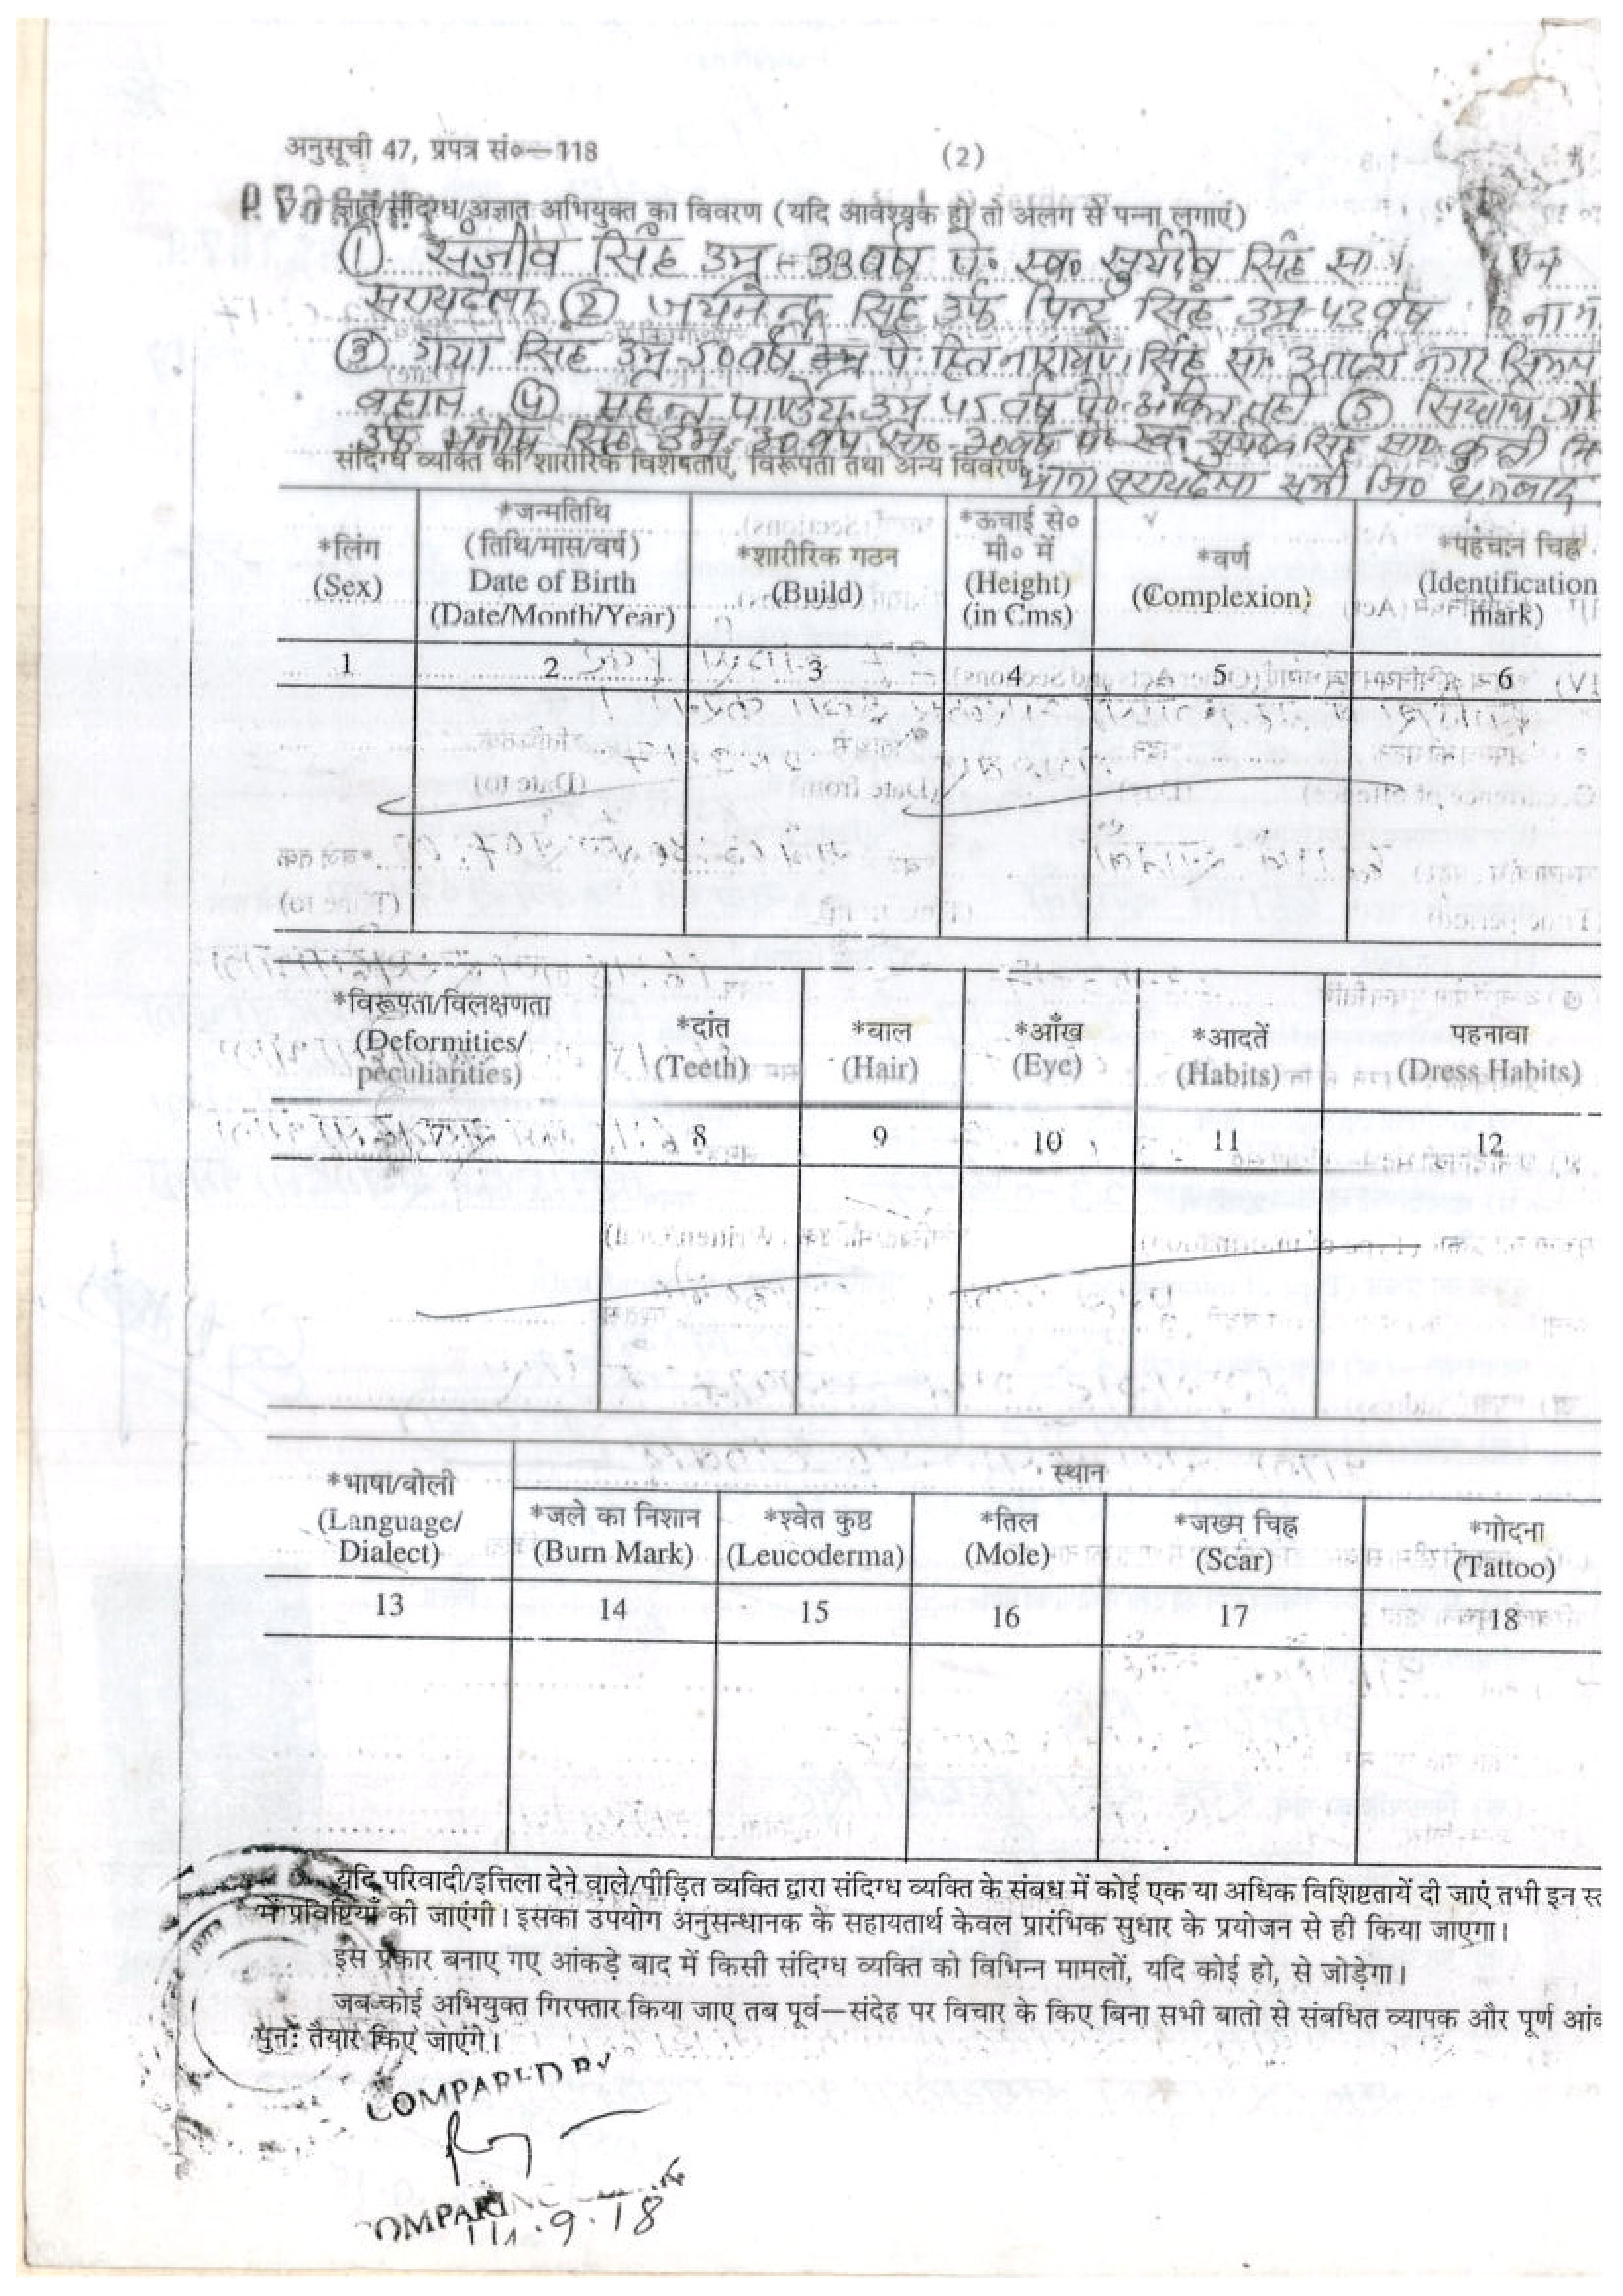 अनुसूची 47, प्रपत्र सं०—118 (2)
ज्ञात/संदिग्ध/अज्ञात अभियुक्त का विवरण (यदि आवश्यक हो तो अलग से पन्ना लगाएं)
① संजीव सिंह उम्र - 33 वर्ष पे० स्व० सुर्यदेव सिंह सा०
सरायढेला ② सिंह उर्फ पिन्टू सिंह उम्र 42 वर्ष
③ गया सिंह उम्र 50 वर्ष पे० नारायण सिंह सा० आदर्श नगर
④ महन्त पाण्डेय उम्र 45 वर्ष पे० अंकित नही ⑤
उर्फ मनीष सिंह उम्र 30 वर्ष पे० स्व० सुर्यदेव सिंह सा०
संदिग्ध व्यक्ति की शारीरिक विशेषताएं, विरूपता तथा अन्य विवरण
थाना सरायढेला सभी जि० धनबाद
*लिंग (Sex)
*जन्मतिथि (तिथि/मास/वर्ष) Date of Birth (Date/Month/Year)
*शारीरिक गठन (Build)
*ऊचाई से० मी० में (Height) (in Cms)
*वर्ण (Complexion)
*पहचान चिह्न (Identification mark)
1 2 3 4 5 6
*विरूपता/विलक्षणता (Deformities/ peculiarities)
*दांत (Teeth)
*बाल (Hair)
*आँख (Eye)
*आदतें (Habits)
पहनावा (Dress Habits)
7 8 9 10 11 12
*भाषा/बोली (Language/ Dialect)
स्थान
*जले का निशान (Burn Mark)
*श्वेत कुष्ठ (Leucoderma)
*तिल (Mole)
*जख्म चिह्न (Scar)
*गोदना (Tattoo)
13 14 15 16 17 18
यदि परिवादी/इत्तिला देने वाले/पीड़ित व्यक्ति द्वारा संदिग्ध व्यक्ति के संबध में कोई एक या अधिक विशिष्टतायें दी जाएं तभी इन
में प्रविष्टियाँ की जाएंगी। इसका उपयोग अनुसन्धानक के सहायतार्थ केवल प्रारंभिक सुधार के प्रयोजन से ही किया जाएगा।
इस प्रकार बनाए गए आंकड़े बाद में किसी संदिग्ध व्यक्ति को विभिन्न मामलों, यदि कोई हो, से जोड़ेगा।
जब कोई अभियुक्त गिरफ्तार किया जाए तब पूर्व—संदेह पर विचार के किए बिना सभी बातो से संबधित व्यापक और पूर्ण
पुनः तैयार किए जाएंगे।
COMPARED BY
14.9.18